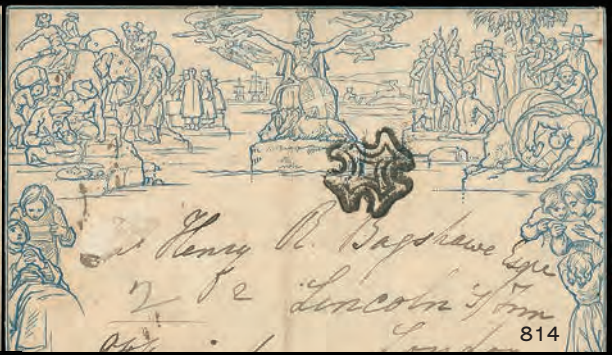 Henry R. Bagshawe Esqre
2
Lincoln's Inn
London
814